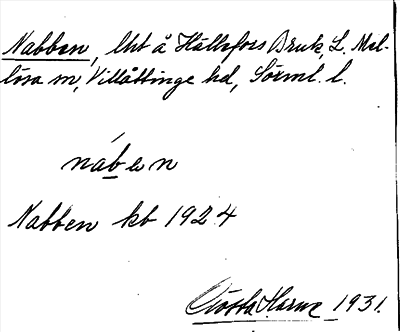 Nabben, lht å Hälleforss Bruk, L. Mel-
lösa sn, Villåttinge hd, Sörml. l.
náben
Nabben kb 1924
Gösta 1931.